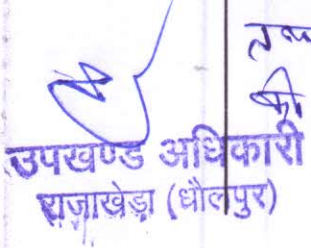 की
उपखण्ड अधिकारी
राजाखेड़ा (धौलपुर)